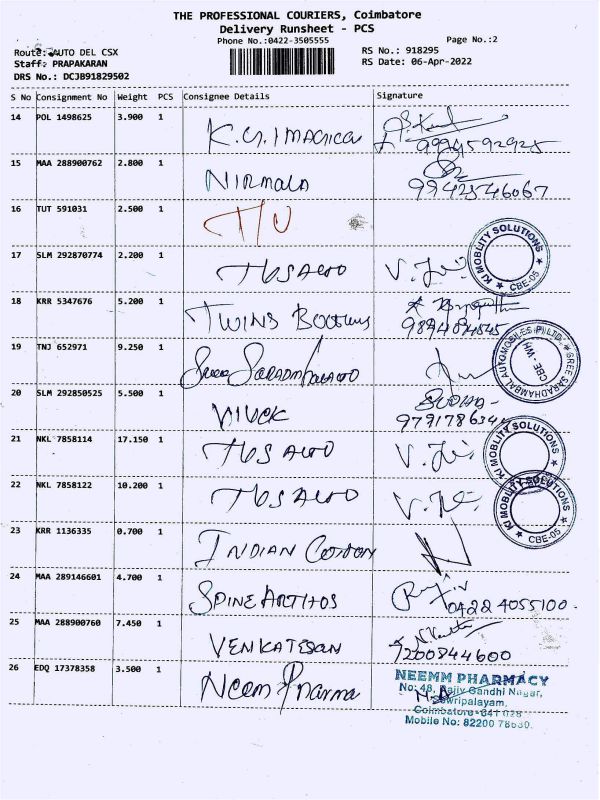 THE PROFESSIONAL COURIERS, Coimbatore
Delivery Runsheet - PCS
Phone No.:0422-3505555
Page No.:2
Route: AUTO DEL CSX
RS No.: 918295
Staff: PRAPAKARAN
RS Date: 06-Apr-2022
DRS No.: DCJB91829502
S No Consignment No Weight PCS Consignee Details Signature
14 POL 1498625 3.900 1
9994592925
15 MAA 288900762 2.800 1 NIRMALA
9942546067
16 TUT 591031 2.500 1
17 SLM 292870774 2.200 1
KI MOBLITY SOLUTIONS
CBE-05
18 KRR 5347676 5.200 1 TWINS
19 TNJ 652971 9.250 1
SREE SARADHAMBAL AUTOMOBILES (P) LTD.
CBE-WH
20 SLM 292850525 5.500 1 VIVEK
SUDHA-
21 NKL 7858114 17.150 1
KI MOBLITY SOLUTIONS
22 NKL 7858122 10.200 1
KI MOBLITY SOLUTIONS
CBE-05
23 KRR 1136335 0.700 1 INDIAN COTTON
24 MAA 289146601 4.700 1 SPINE
0422 4055100.
25 MAA 288900760 7.450 1 VENKATESAN
7200844600
26 EDQ 17378358 3.500 1 Neem Pharma
NEEMM PHARMACY
No: 48, Rajiv Gandhi Nagar,
Sowripalayam,
Coimbatore-641 028
Mobile No: 82200 78630.